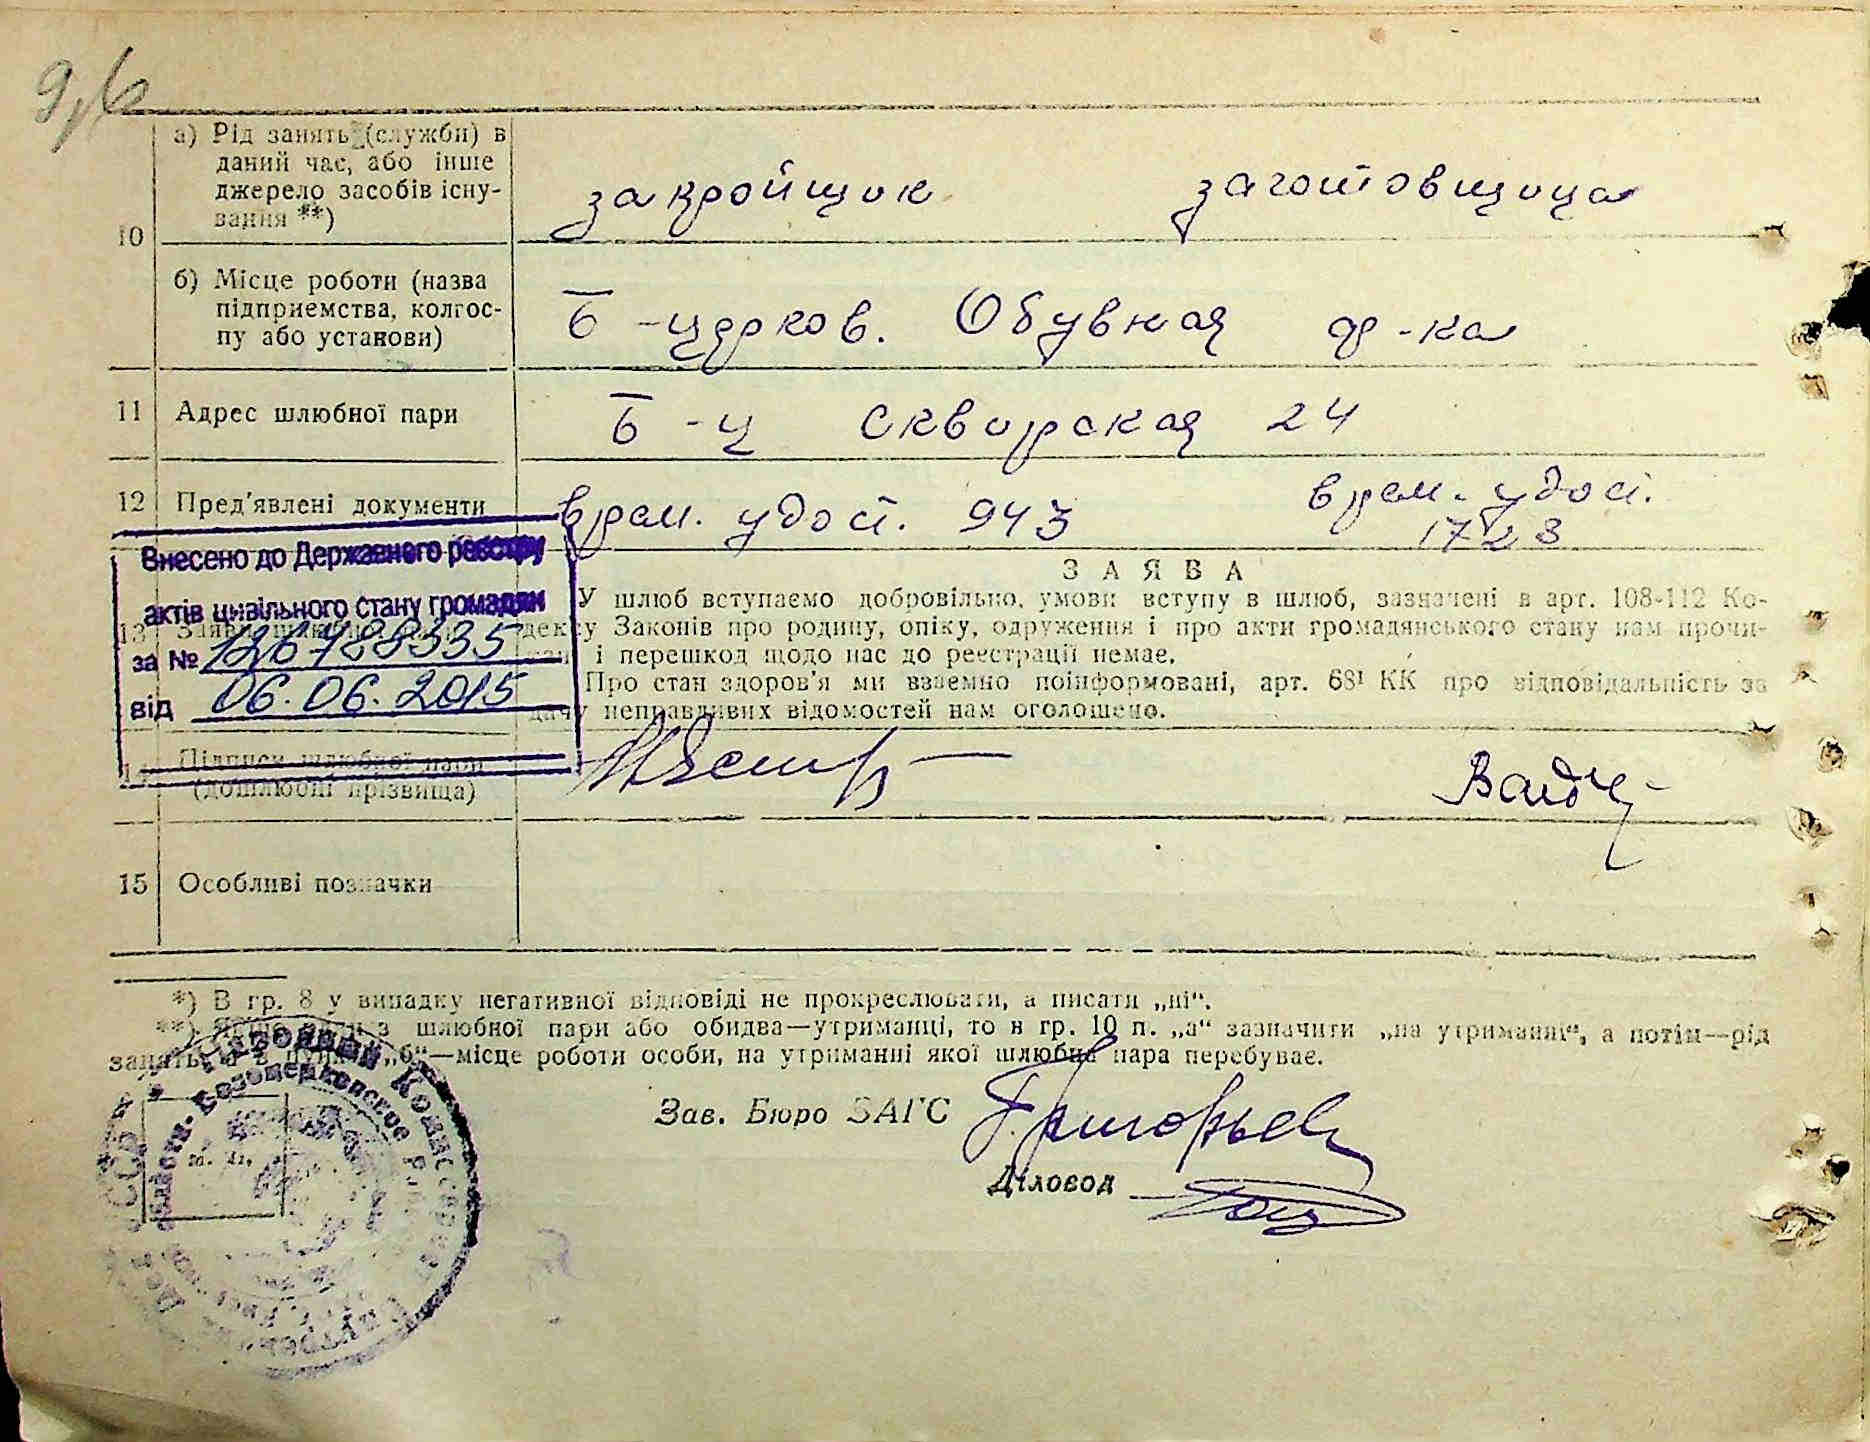 а) Рід занять (служби) в
даний час, або інше
джерело засобів існу-
вання **)
закройщик заготовщица
10
б) Місце роботи (назва
підприємства, колгос-
пу або установи)
Б-церков. Обувная ф-ка
11 Адрес шлюбної пари
Б-ц Сквирская 24
12 Пред'явлені документи
врем. удост. 943 врем. удост.
1723
Внесено до Державного реєстру
актів цивільного стану громадян
за № 126788335
від 06.06.2015
ЗАЯВА
13
У шлюб вступаємо добровільно, умови вступу в шлюб, зазначені в арт. 108-112 Ко-
дексу Законів про родину, опіку, одруження і про акти громадянського стану нам прочи-
і перешкод щодо нас до реєстрації немає.
Про стан здоров'я ми взаємно поінформовані, арт. 68¹ КК про відповідальність за
дачу неправдивих відомостей нам оголошено.
14 Підписи шлюбної пари
(дошлюбні прізвища)
15 Особливі позначки
*) В гр. 8 у випадку негативної відповіді не прокреслювати, а писати „ні“.
**) Якщо з шлюбної пари або обидва—утриманці, то в гр. 10 п. „а“ зазначити „на утриманні“, а потім—рід
занять, а в пункті „б“—місце роботи особи, на утриманні якої шлюбна пара перебуває.
Зав. Бюро ЗАГС Григорьев
Діловод
м. п.